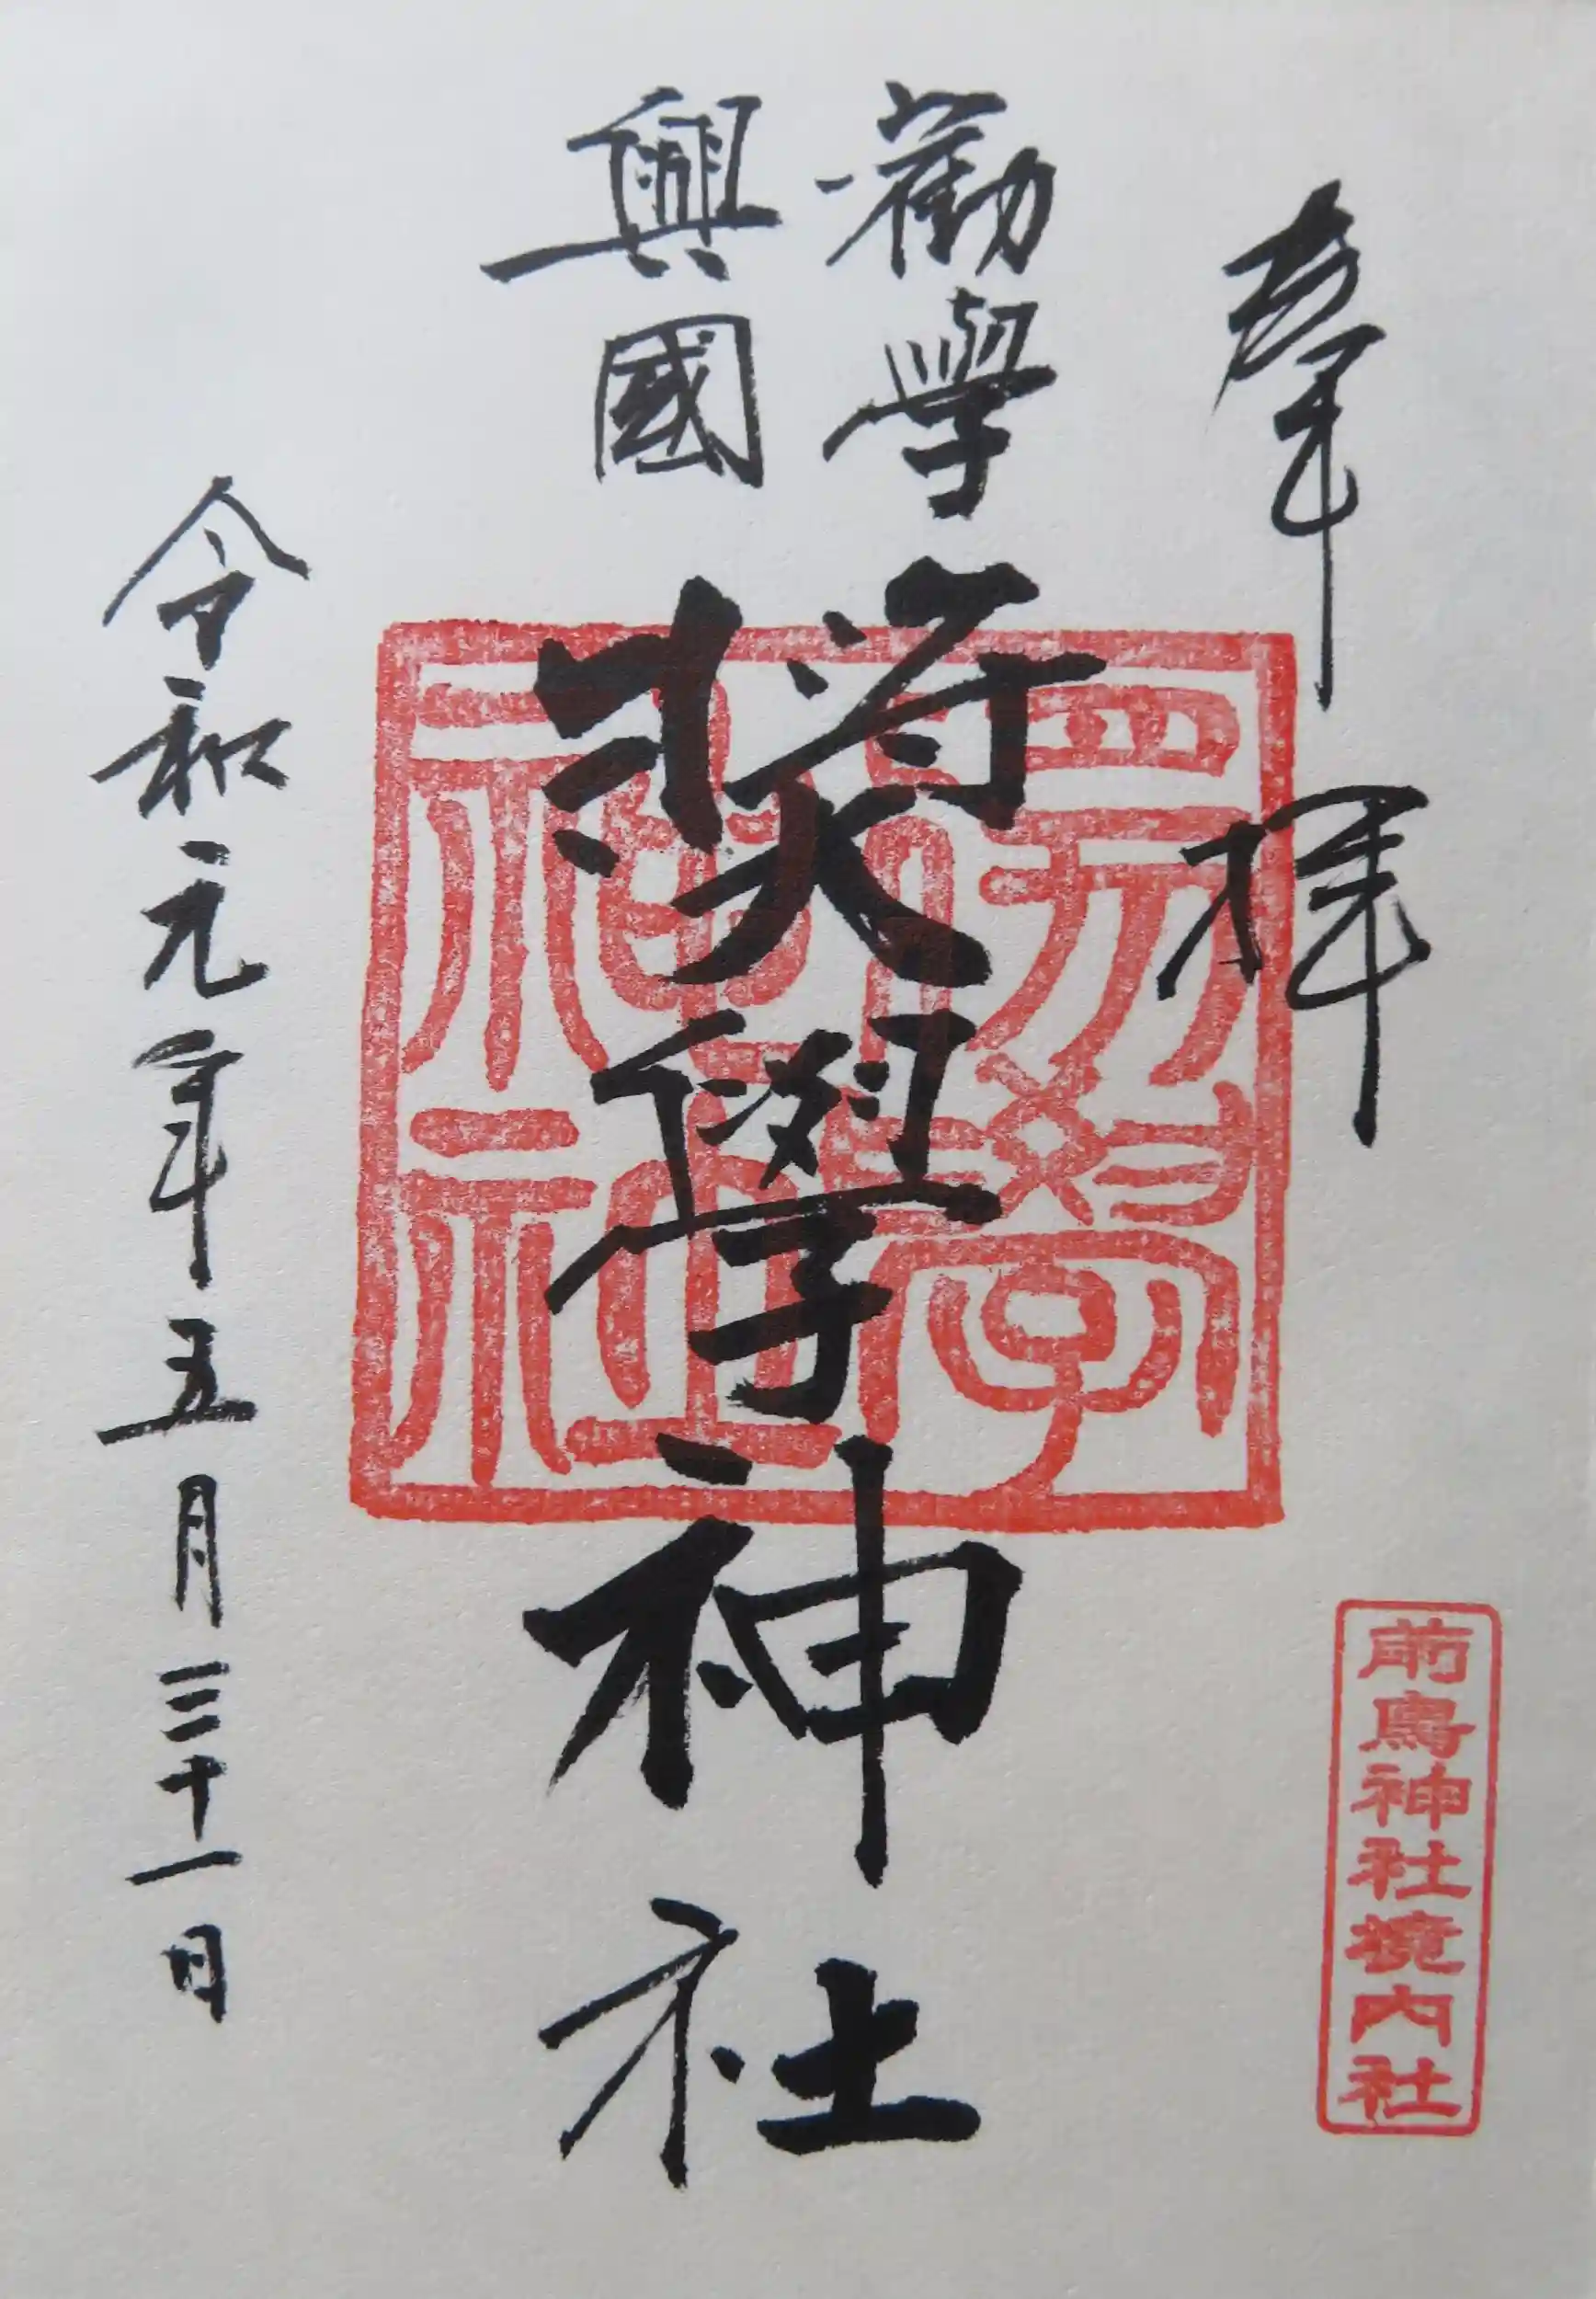 奉拝
前鳥神社境内社
勸學
興國
奬學神社
令和元年五月三十一日